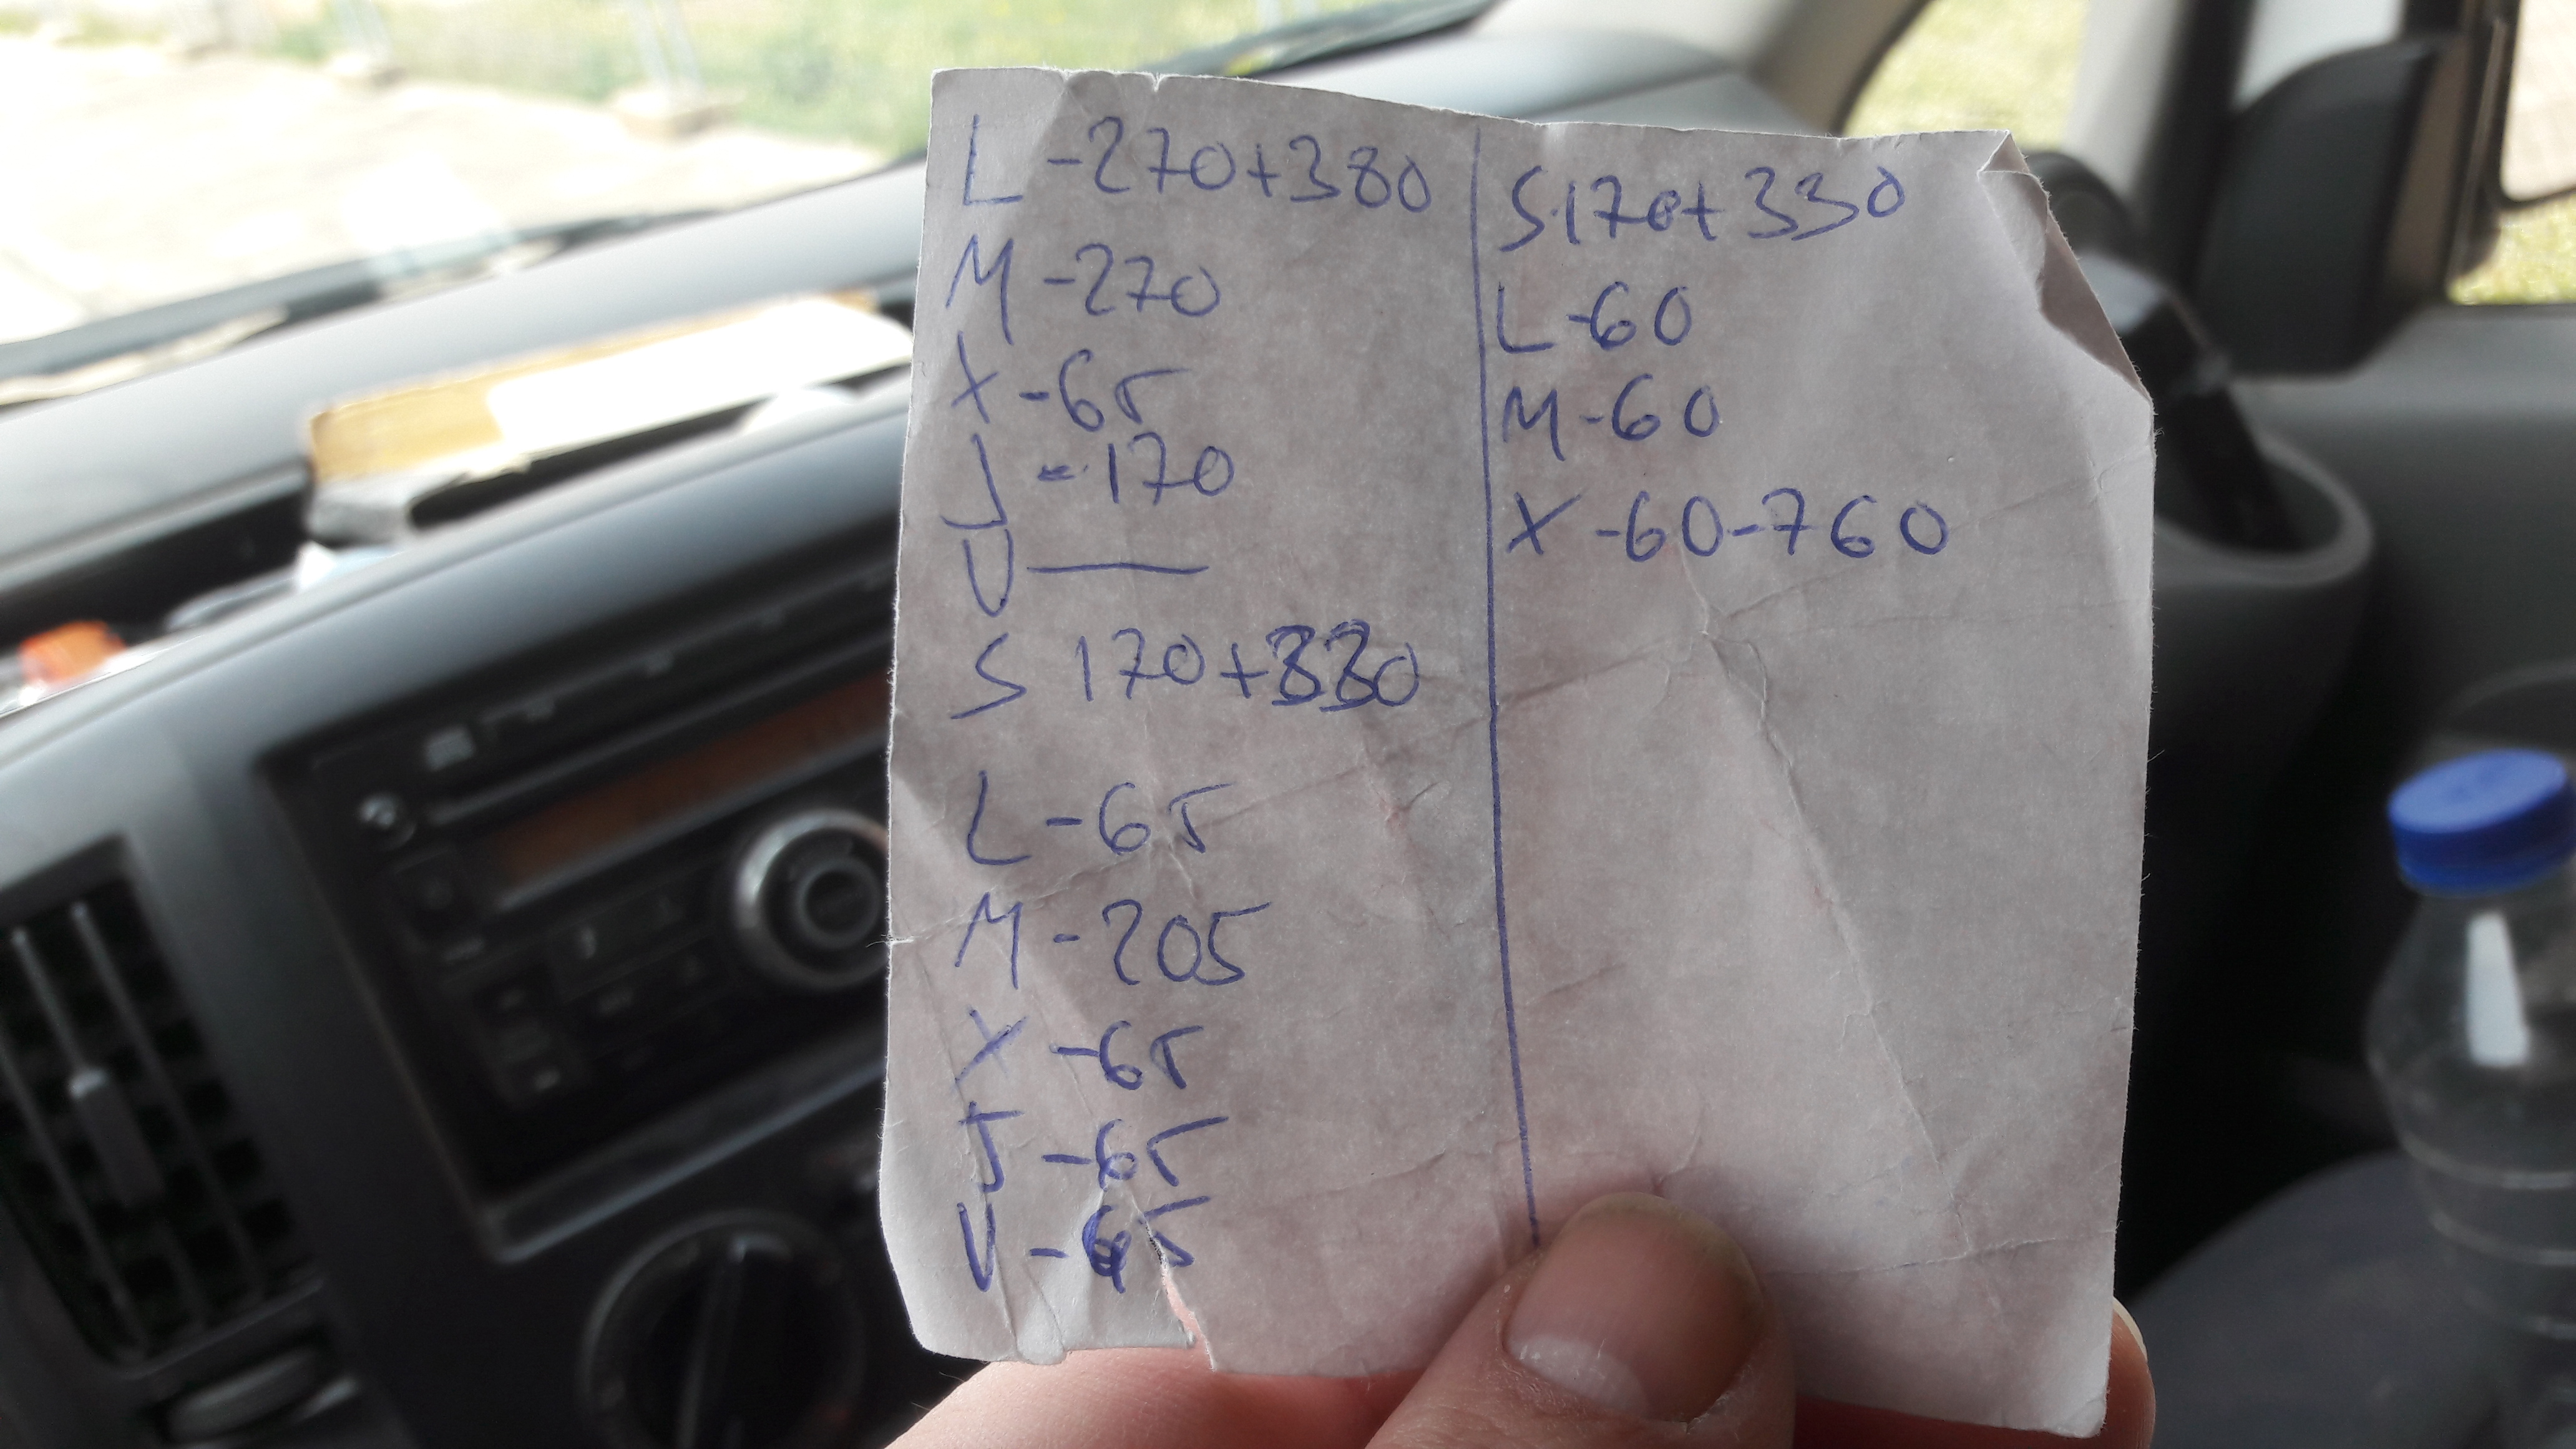 L -270+380
M -270
X -65
J -170
U —
S 170+330
L -65
M -205
X -65
J -65
V -65
S.170+330
L -60
M -60
X -60-760